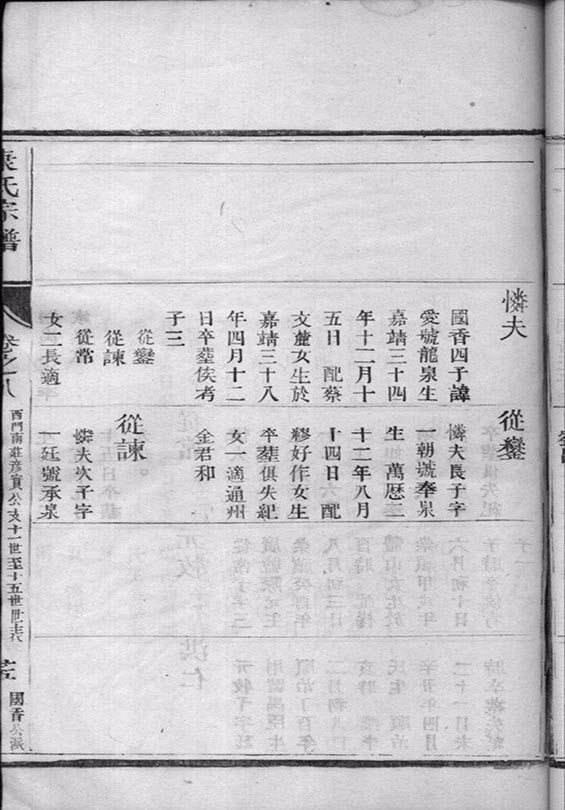 憐夫
國香四子諱
愛號龍泉生
嘉靖三十四
年十二月十
五日 配蔡
文麓女生於
嘉靖三十八
年四月十二
日卒塟俟考
子三
從鑾
從諫
從常
女二長適
從鑾
憐夫長子字
一朝號奉泉
生萬曆二
十二年八月
十四日 配
繆好作女生
卒塟俱失紀
女一適通州
金君和
從諫
憐夫次子字
一廷號承泉
氏宗譜
卷之八
西門南莊彥實公支十一世至十五世世
國香公派